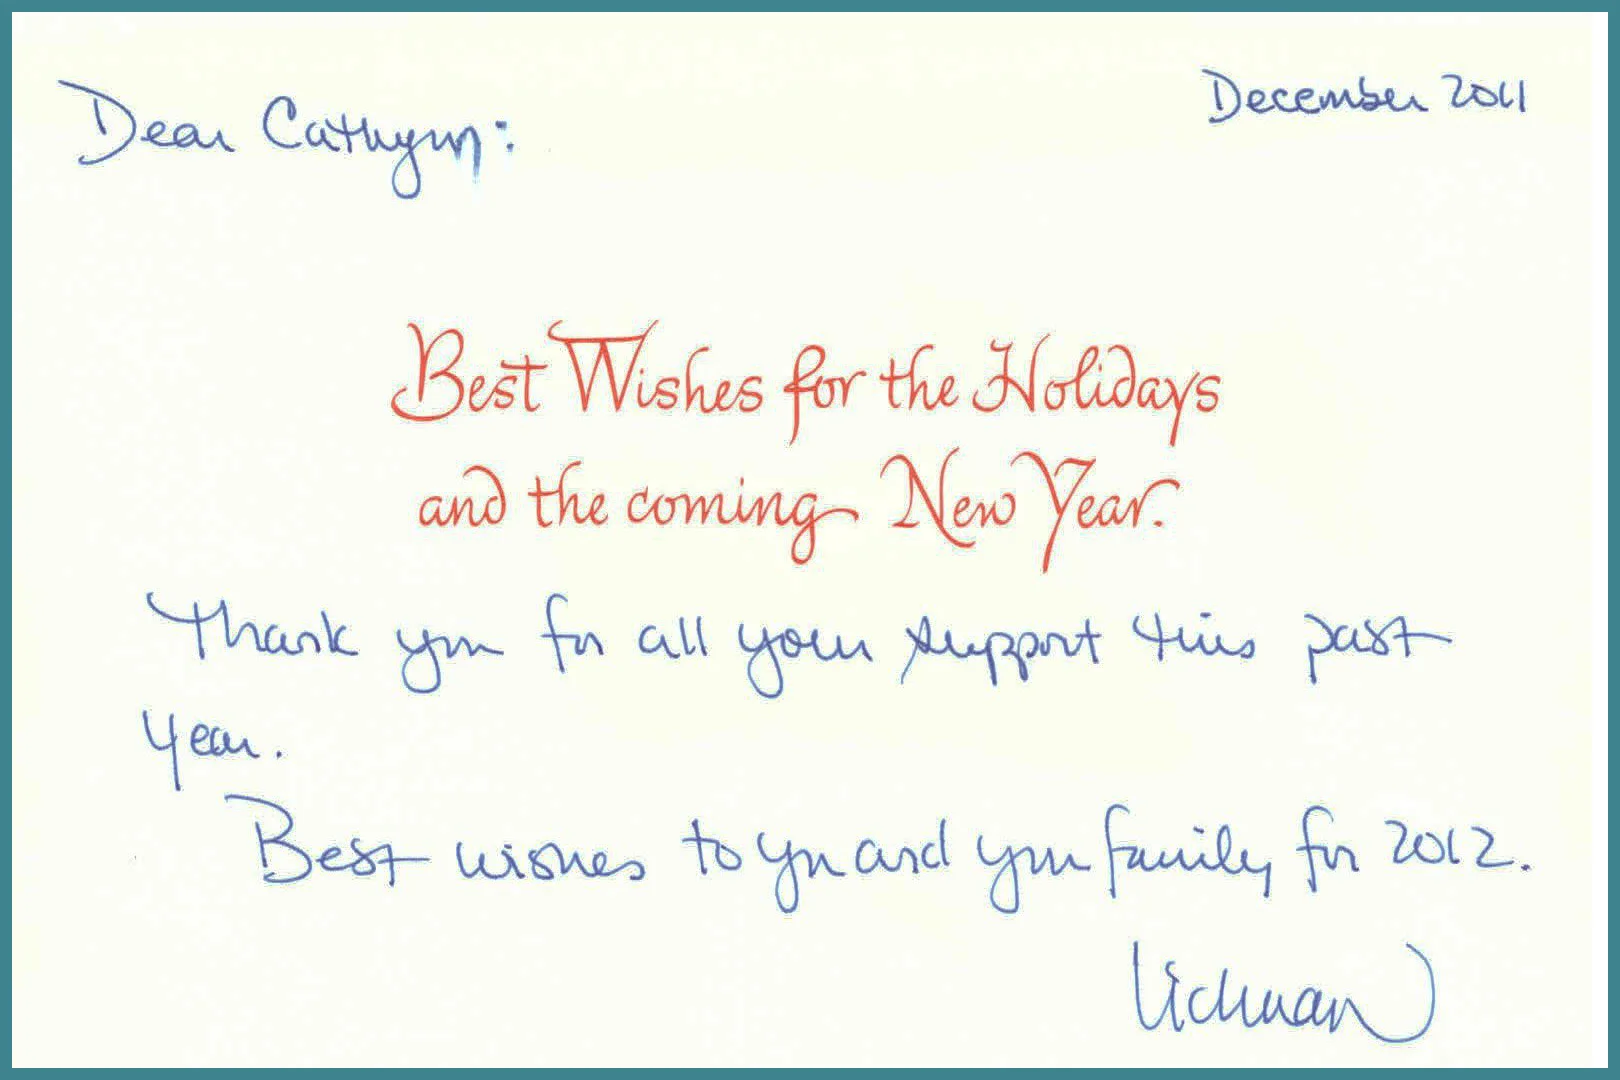 December 2011
Dear Cathryn:
Best Wishes for the Holidays
and the coming New Year.
Thank you for all your support this past
year.
Best wishes to you and your family for 2012.